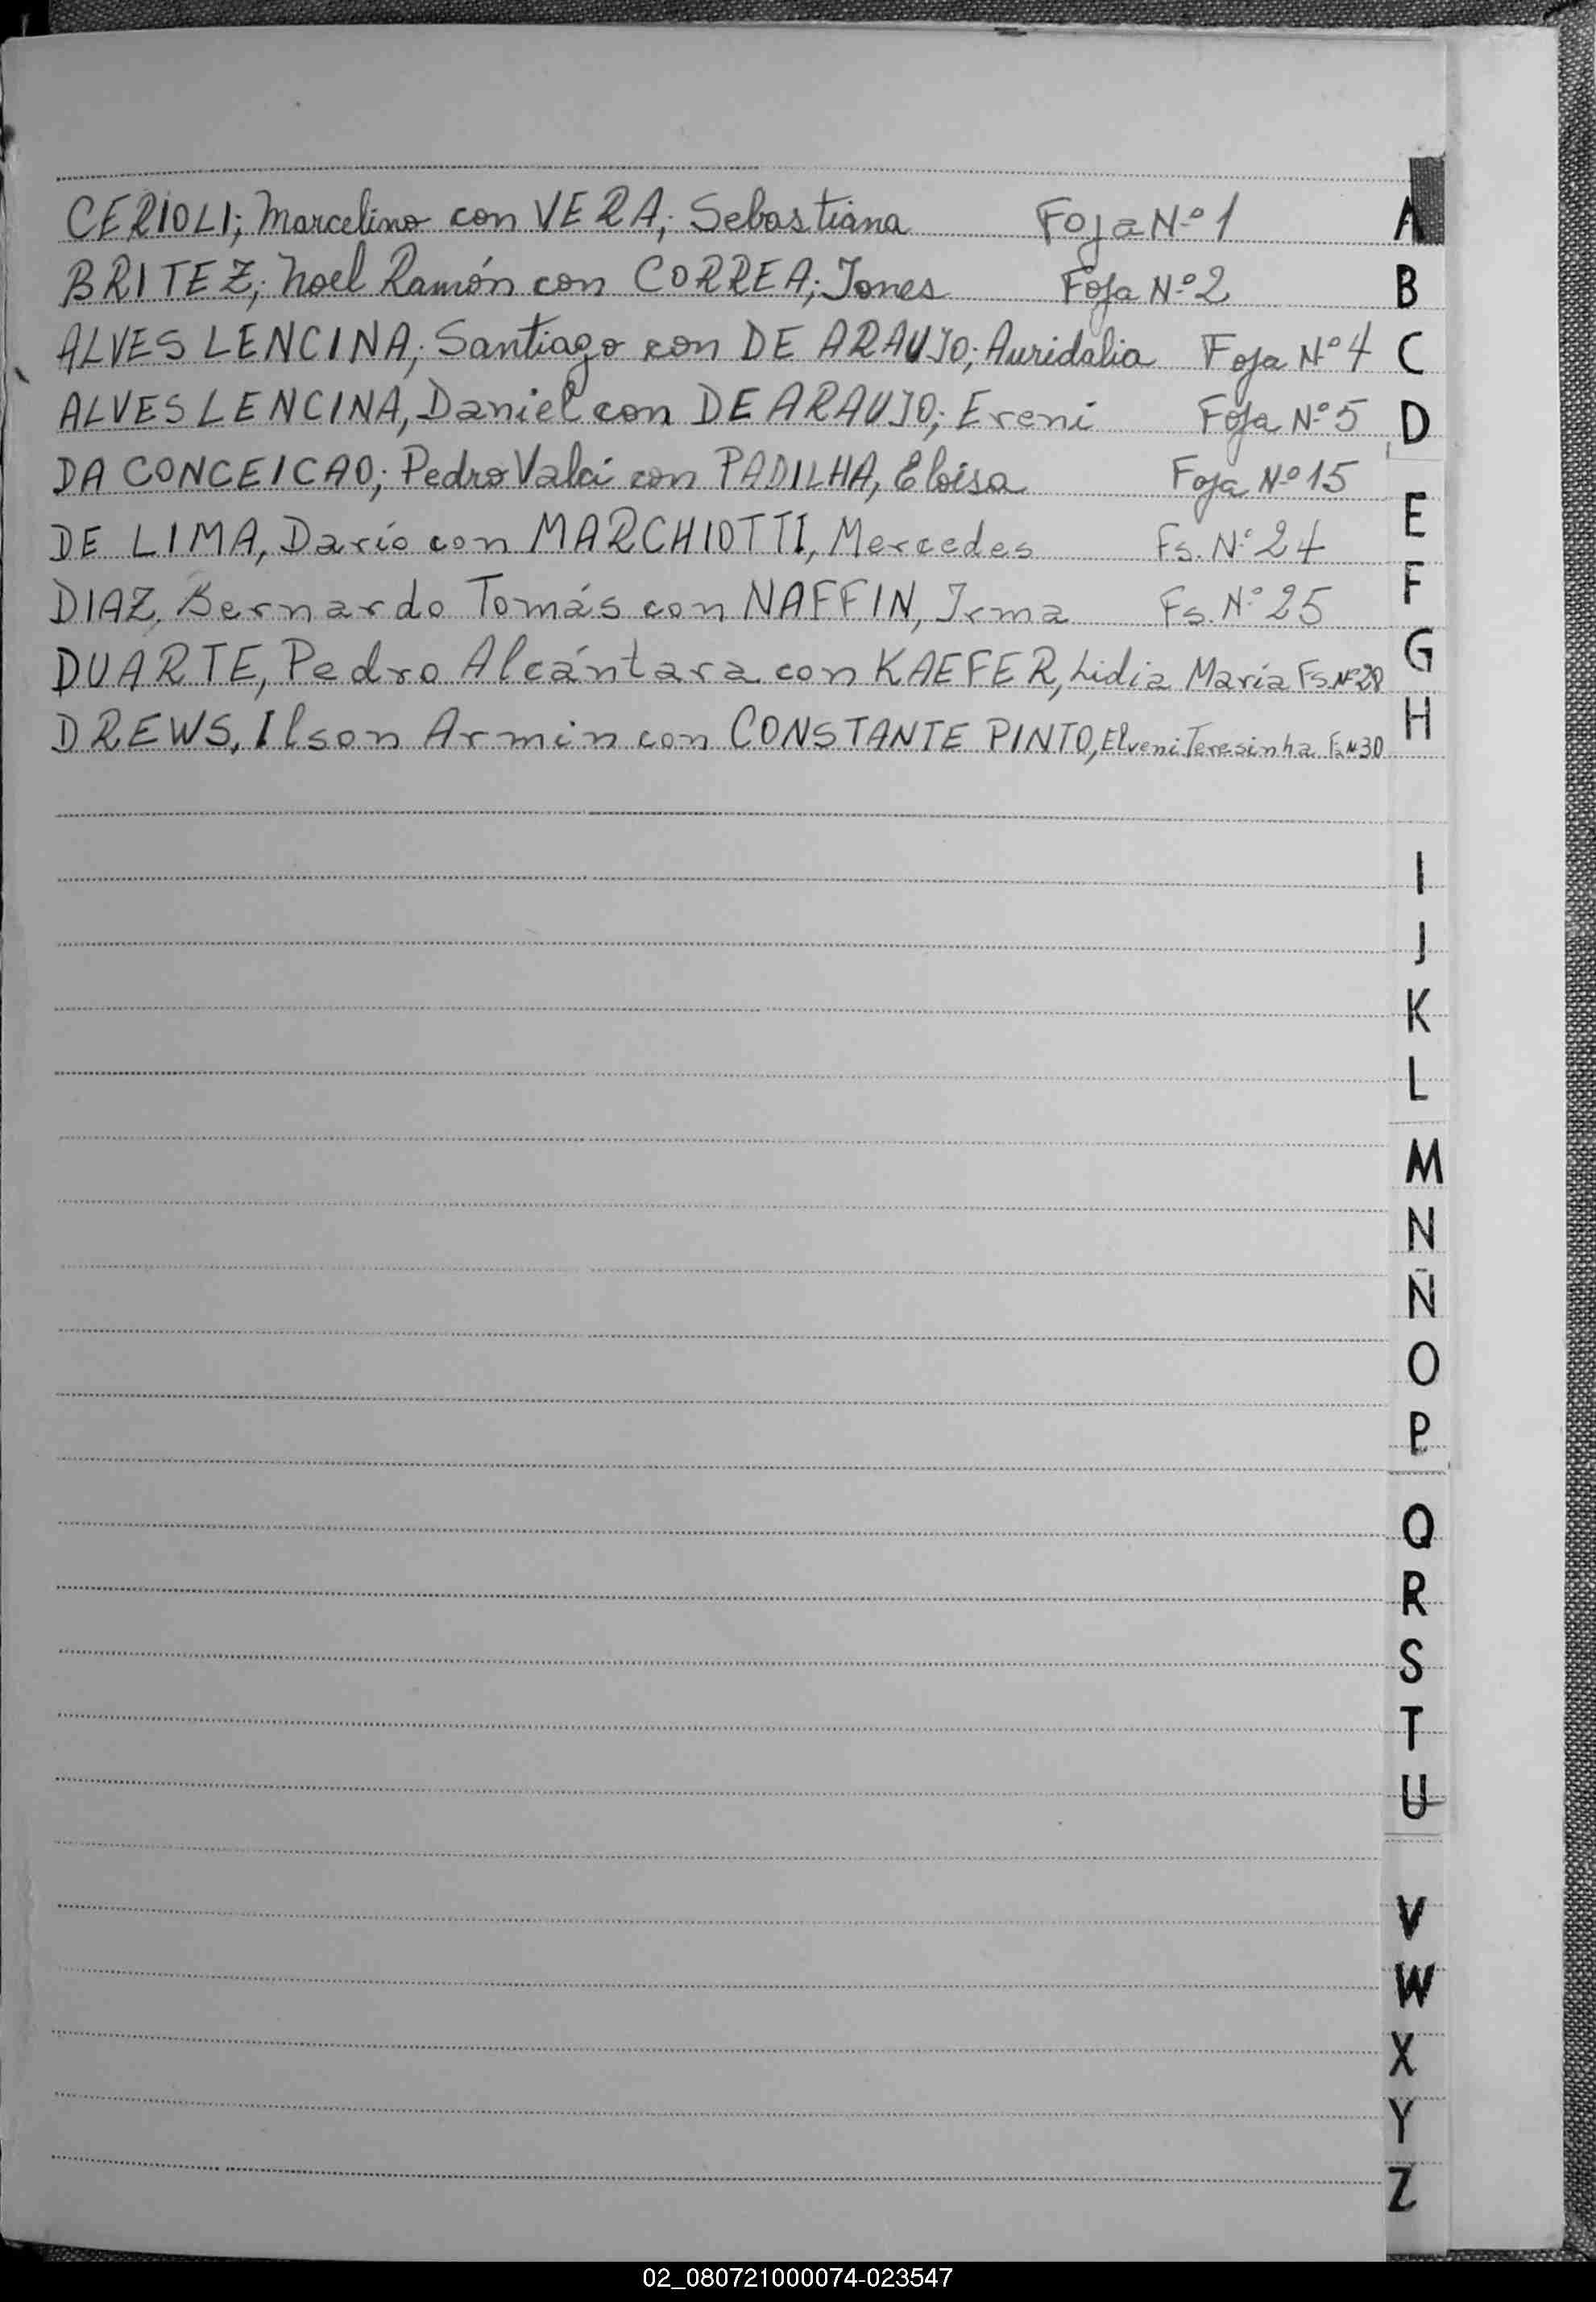 CERIOLI; Marcelino con VERA; Sebastiana Foja Nº 1
BRITEZ; Noel Ramón con CORREA; Jones Foja Nº 2
ALVES LENCINA; Santiago con DE ARAUJO; Auridalia Foja Nº 4
ALVES LENCINA, Daniel con DE ARAUJO; Ereni Foja Nº 5
DA CONCEICAO; Pedro Valci con PADILHA, Eloisa Foja Nº 15
DE LIMA, Darío con MARCHIOTTI, Mercedes Fs. Nº 24
DIAZ, Bernardo Tomás con NAFFIN, Irma Fs. Nº 25
DUARTE, Pedro Alcántara con KAEFER, Lidia María Fs. Nº
DREWS, Ilson Armin con CONSTANTE PINTO, Elveni Teresinha Fs Nº 30
A
B
C
D
E
F
G
H
I
J
K
L
M
N
Ñ
O
P
Q
R
S
T
U
V
W
X
Y
Z
02_080721000074-023547